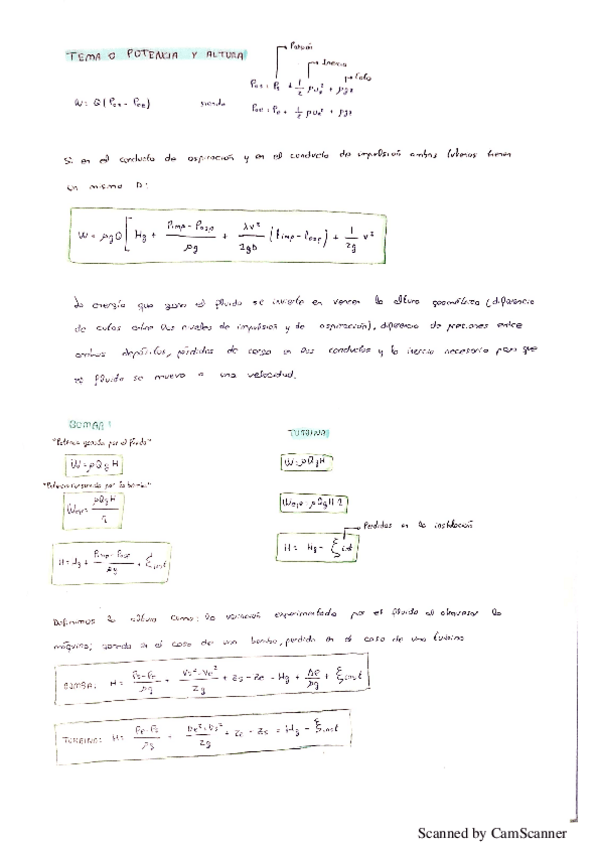 TEMA 0 POTENCIA Y ALTURA
Presión
Inercia
Cota
Pos = Ps + 1/2 ρ us² + ρgz
W = Q (Pos - Poe) siendo
Poe = Pe + 1/2 ρ ue² + ρgz
Si en el conducto de aspiración y en el conducto de impulsión ambas tuberías tienen
un mismo D:
W = ρgQ [ Hg + (Pimp - Pasp)/ρg + λv²/2gD (limp - lasp) + 1/2g v²
La energía que gana el fluido se invierte en vencer la altura geométrica (diferencia
de cotas entre los niveles de impulsión y de aspiración), diferencia de presiones entre
ambos depósitos, pérdidas de carga en los conductos y la inercia necesaria para que
el fluido se mueva a una velocidad.
BOMBAS
TURBINAS
"Potencia ganada por el fluido"
W = ρQgH
W = ρQgH
"Potencia consumida por la bomba"
= ρQgH/η
= ρQgH η
Pérdidas en la instalación
H = Hg + (Pimp - Pasp)/ρg + ξinst
H = Hg - ξinst
Definimos la altura como: la variación experimentada por el fluido al atravesar la
máquina; ganada en el caso de una bomba, perdida en el caso de una turbina
BOMBA: H = (Ps - Pe)/ρg + (vs² - ve²)/2g + zs - ze = Hg + ΔP/ρg + ξinst
TURBINA: H = (Pe - Ps)/ρg - (ve² - vs²)/2g + ze - zs = Hg - ξinst
Scanned by CamScanner